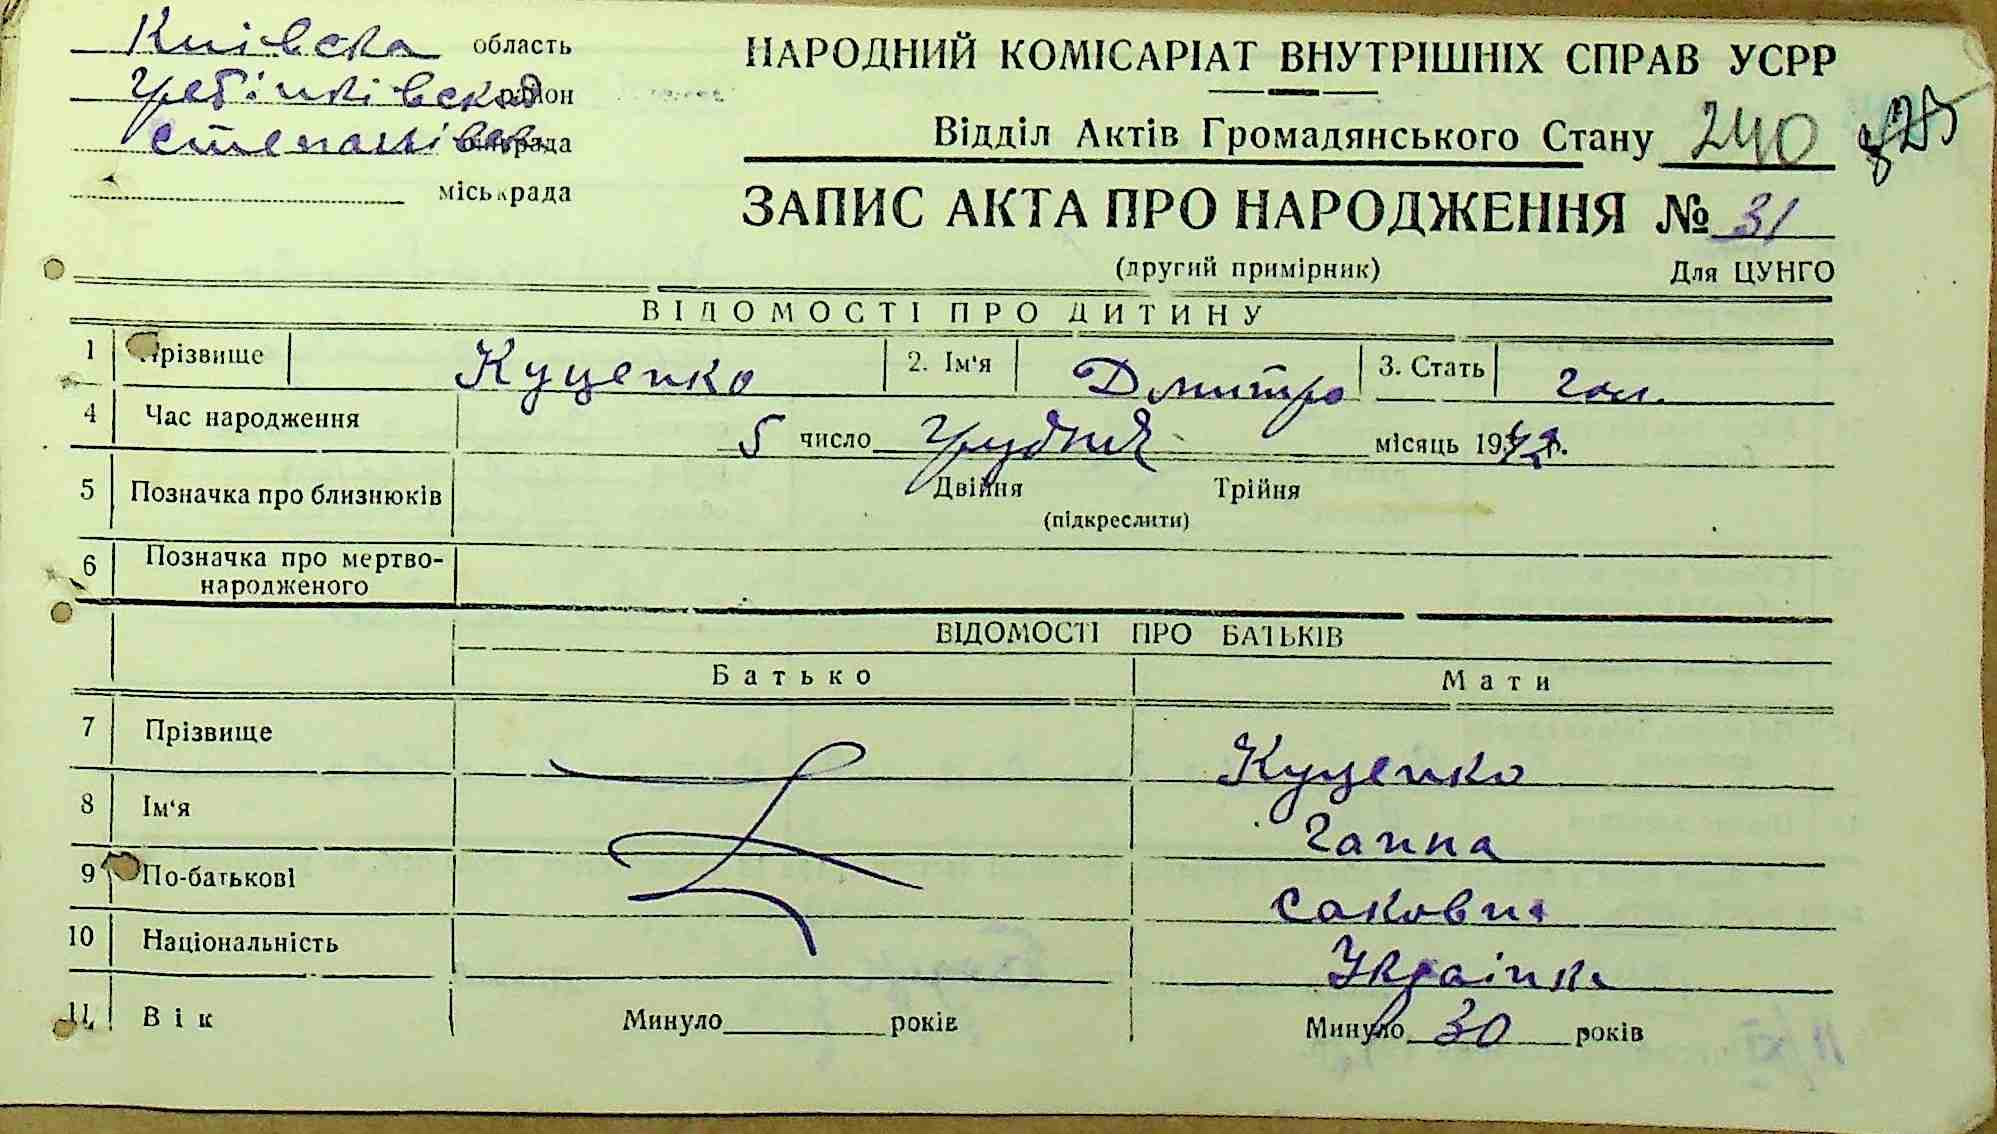 Київска область
Гребінківский район
Степанівск сільрада
міськрада
НАРОДНИЙ КОМІСАРІАТ ВНУТРІШНІХ СПРАВ УСРР
Відділ Актів Громадянського Стану 240
ЗАПИС АКТА ПРО НАРОДЖЕННЯ № 31
(другий примірник) Для ЦУНГО
ВІДОМОСТІ ПРО ДИТИНУ
1 Прізвище Куценко 2. Ім'я Дмитро 3. Стать чол.
4 Час народження 5 число Грудня місяць 19 р.
5 Позначка про близнюків Двійня Трійня
(підкреслити)
6 Позначка про мертво-
народженого
ВІДОМОСТІ ПРО БАТЬКІВ
Батько Мати
7 Прізвище Куценко
8 Ім'я Ганна
9 По-батькові Саковн
10 Національність Українка
11 Вік Минуло років Минуло 30 років